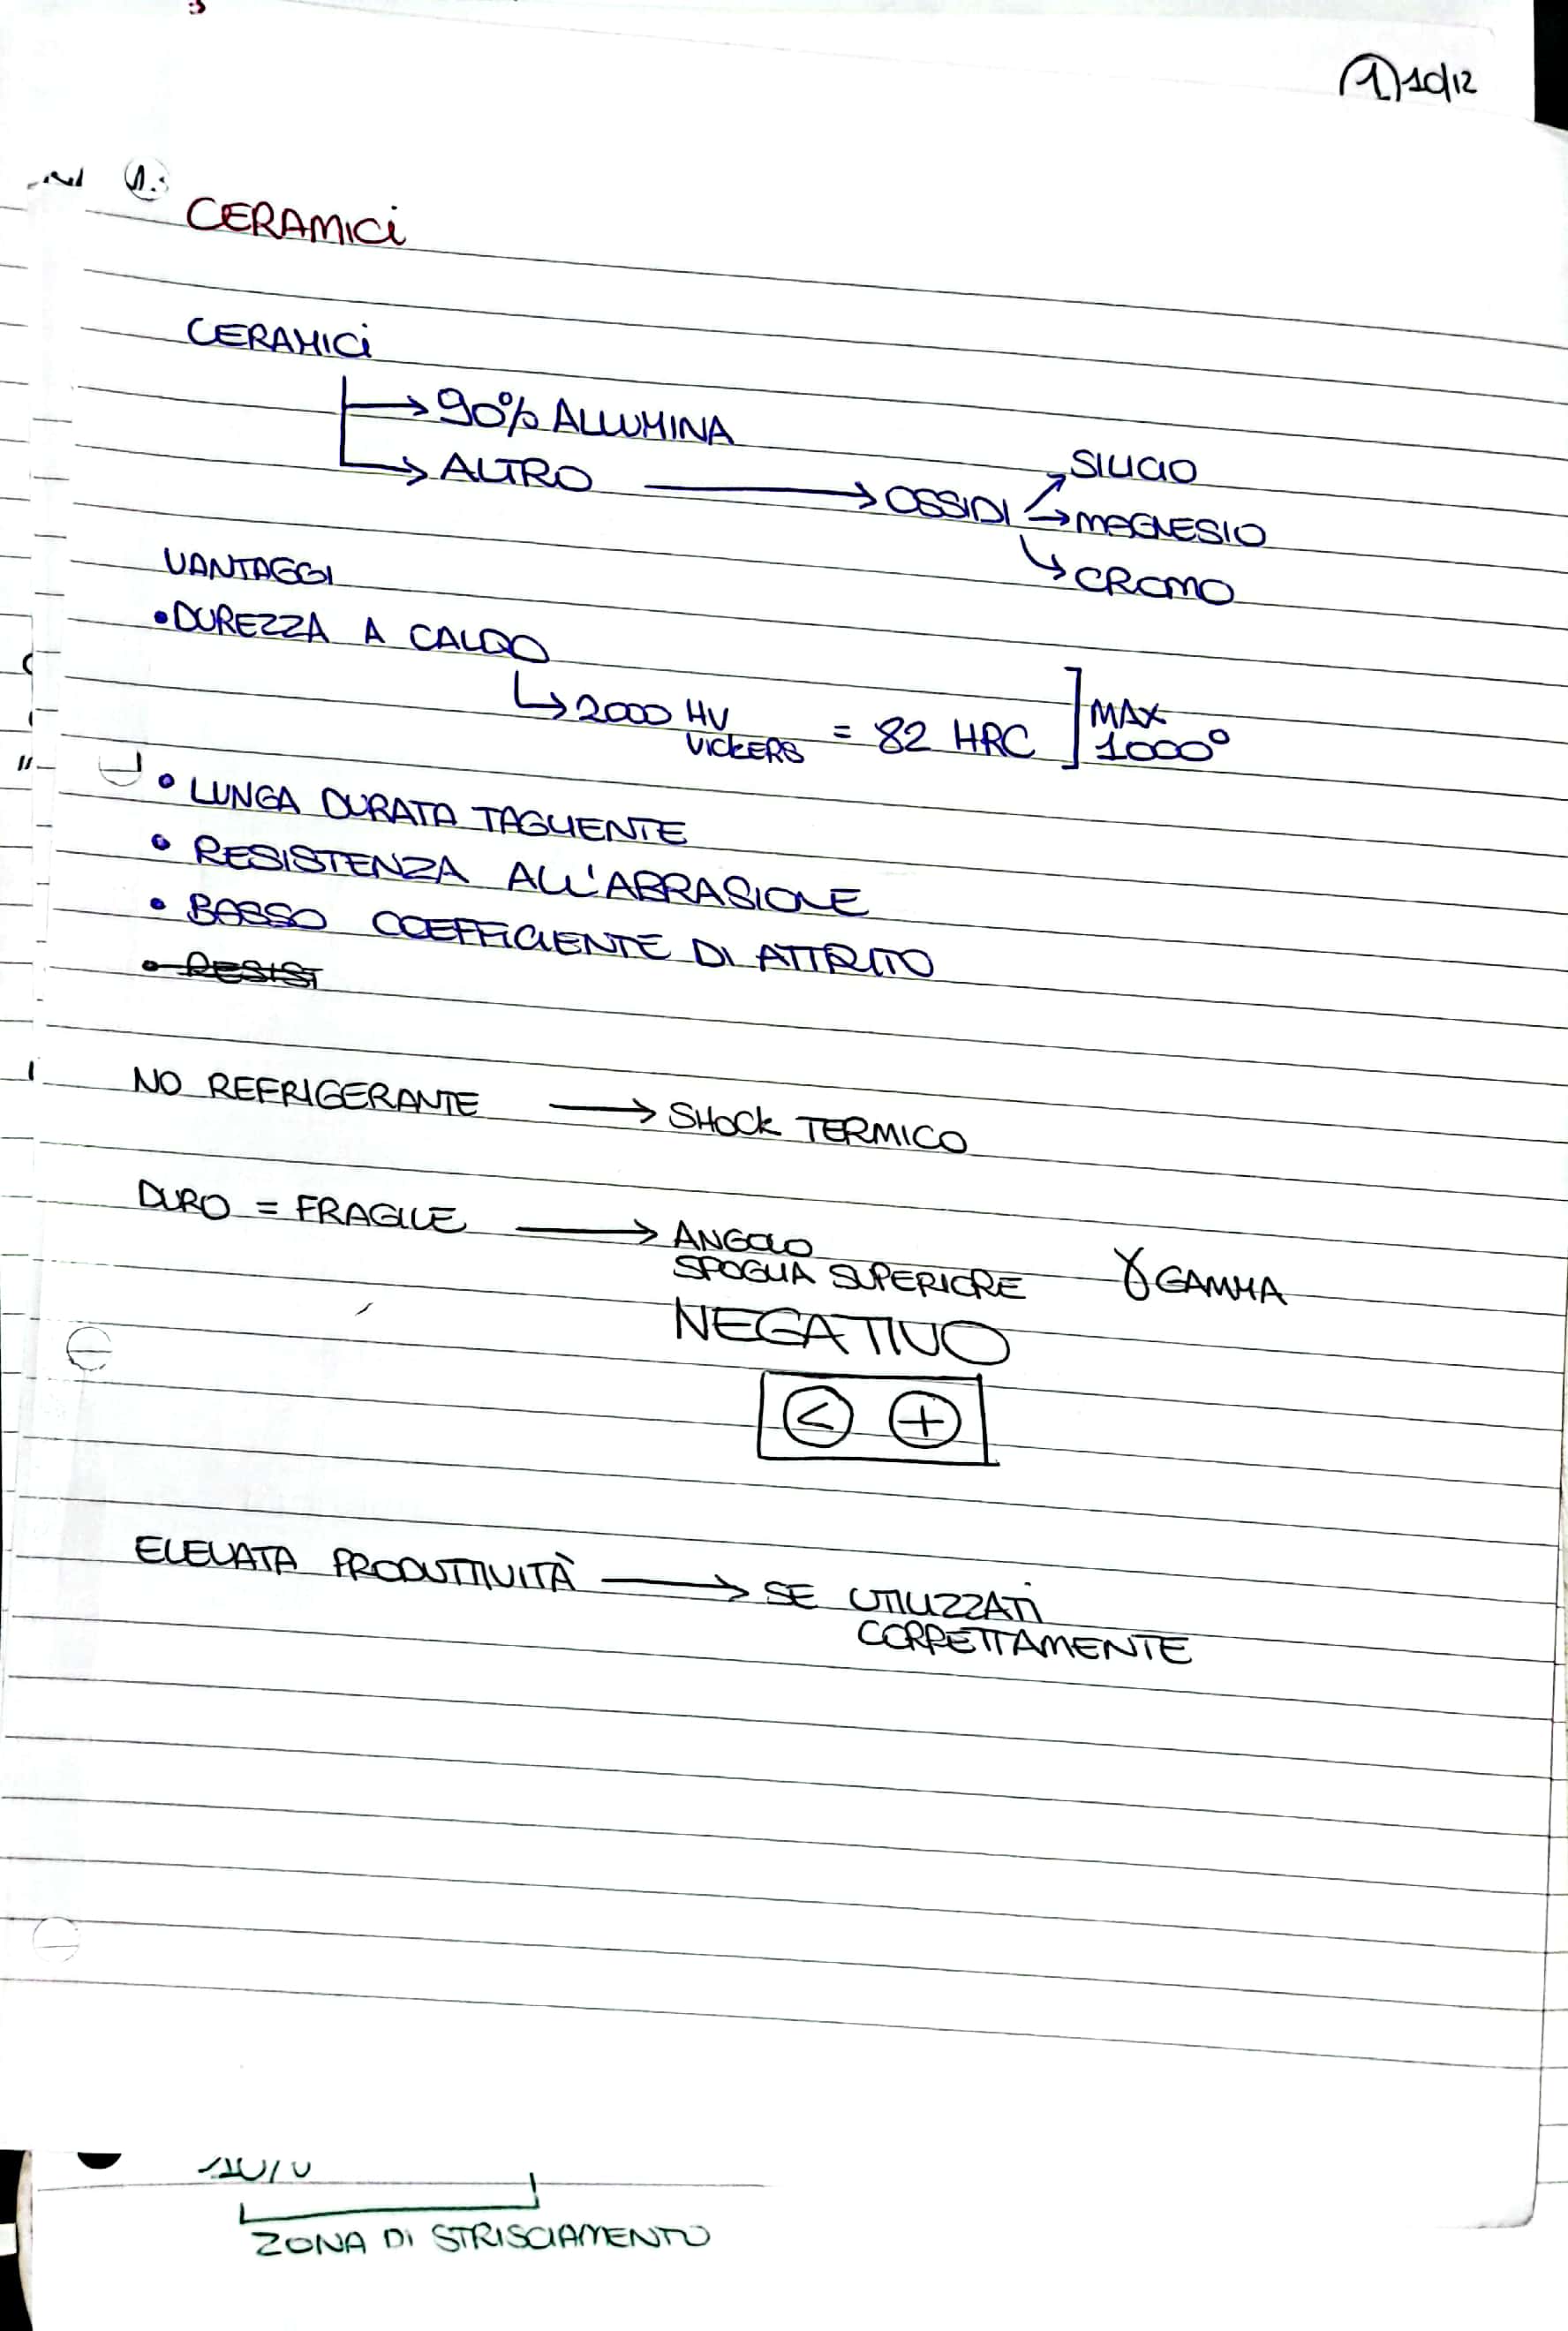 1) 10/12
CERAMICI
CERAMICI
→ 90% ALLUMINA
→ ALTRO → OSSIDI → SILICIO
→ MAGNESIO
→ CROMO
VANTAGGI
• DUREZZA A CALDO
↳ 2000 HV = 82 HRC ] MAX
VICKERS 1000°
• LUNGA DURATA TAGLIENTE
• RESISTENZA ALL'ABRASIONE
• BASSO COEFFICIENTE DI ATTRITO
• RESIST
NO REFRIGERANTE → SHOCK TERMICO
DURO = FRAGILE → ANGOLO
SPOGLIA SUPERIORE γ GAMMA
NEGATIVO
< +
ELEVATA PRODUTTIVITÀ → SE UTILIZZATI
CORRETTAMENTE
ZONA DI STRISCIAMENTO